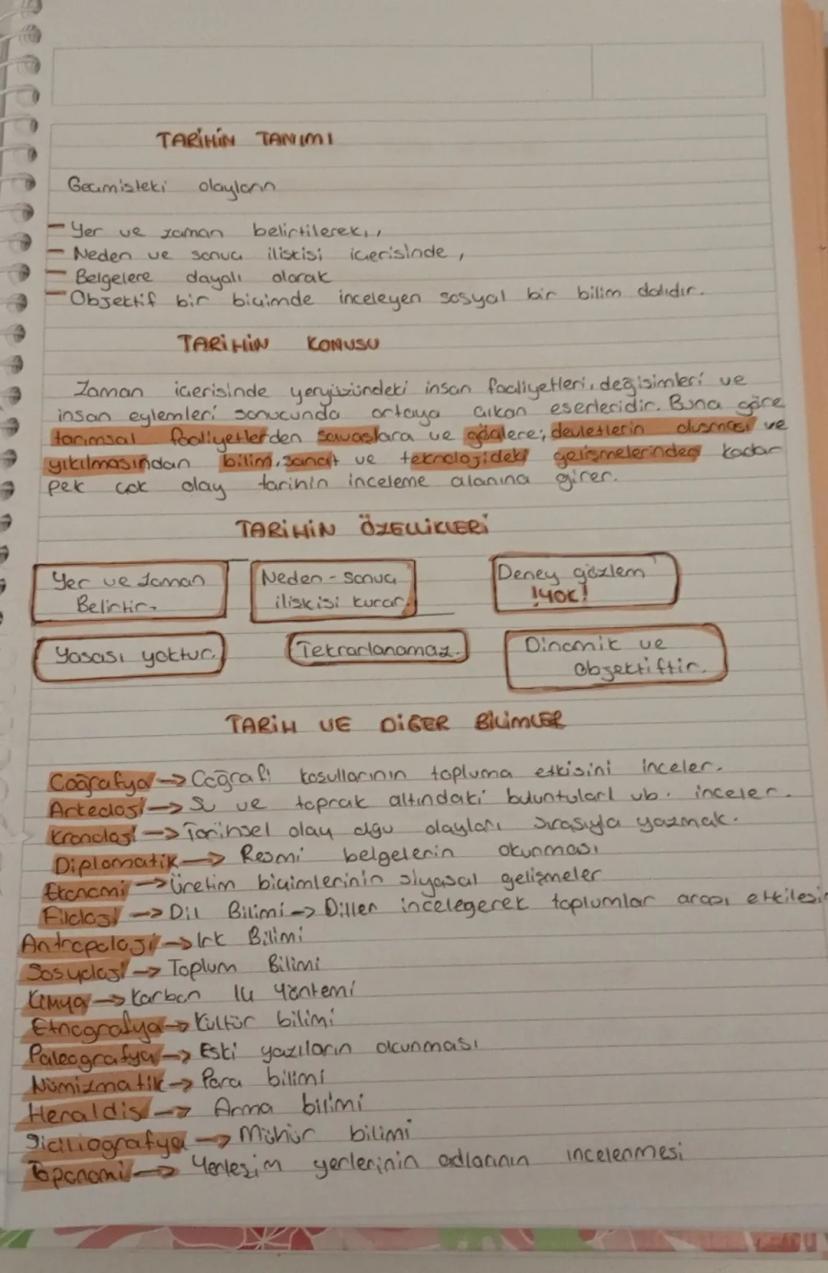 TARİHİN TANIMI
Gecmisteki olayların
- Yer ve zaman belirtilerek,,
- Neden ve sonuc iliskisi icerisinde,
- Belgelere dayalı olarak
- Objektif bir bicimde inceleyen sosyal bir bilim dalıdır.
TARİHİN KONUSU
Zaman icerisinde yeryüzündeki insan faaliyetleri, değisimleri ve
insan eylemleri sonucunda ortaya cıkan eserleridir. Buna göre
tarımsal faaliyetlerden savaslara ve göclere; devletlerin olusması ve
yıkılmasından bilim, sanat ve teknolojideki gelismelerinden kadar
pek cok olay tarihin inceleme alanına girer.
TARİHİN ÖZELLİKLERİ
Yer ve zaman Neden - sonuc Deney gözlem
Belirtir. iliskisi kurar. !YOK!
Yasası yoktur. Tekrarlanamaz. Dinamik ve
objektiftir.
TARİH VE DİĞER BİLİMLER
Coğrafya -> Coğrafi kosullarının topluma etkisini inceler.
Arkeoloji -> Su ve toprak altındaki buluntuları vb. inceler.
Kronoloji -> Tarihsel olay olgu olayları sırasıyla yazmak.
Diplomatik -> Resmi belgelerin okunması
Ekonomi -> Üretim bicimlerinin siyasal gelismeler
Filoloji -> Dil Bilimi -> Diller incelegerek toplumlar arası
Antropoloji -> Irk Bilimi
Sosyoloji -> Toplum Bilimi
Kimya -> Karbon 14 Yöntemi
Etnografya -> Kültür bilimi
Paleografya -> Eski yazıların okunması
Nümizmatik -> Para bilimi
Heraldis -> Arma bilimi
Sicilliografya -> Mühür bilimi
Toponomi -> Yerlesim yerlerinin adlarının incelenmesi